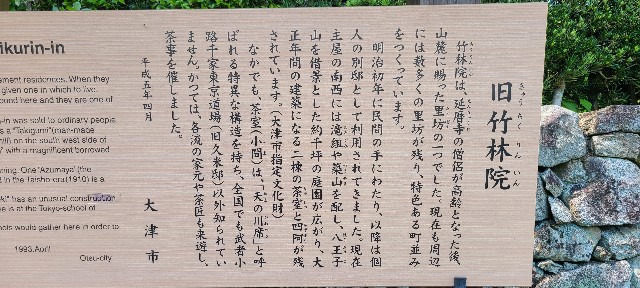 旧竹林院
きゅうちくりんいん
竹林院は、延暦寺の僧侶が高齢となった後、
山麓に賜った里坊の一つでした。現在も周辺
には数多くの里坊が残り、特色ある町並み
をつくっています。
明治初年に民間の手にわたり、以降は個
人の別邸として利用されてきました。現在
主屋の南西には滝組や築山を配し、八王子
山を借景とした約千坪の庭園が広がり、大
正年間の建築になる二棟の茶室と四阿が残
されています。(大津市指定文化財)
なかでも、茶室(小間)は、「天の川席」と呼
ばれる特異な構造を持ち、全国でも武者小
路千家東京道場(旧久米邸)以外知られてい
ません。かつては、各流の家元や茶匠も来遊し、
茶事を催しました。
平成五年四月
大津市
ikurin-in
ement residences. When they
given one in which to live.
ound here and they are one of
-in was sold to ordinary people
s a "Takigumi"(man-made
in on the south west side of
with a magnificent borrowed
ning. One "Azumaya" (the
in the Taisho era(1910) is a
ki" has an unusual construction
e is at the Tokyo-school of
ools would gather here in order to
1993.April
Otsu-city